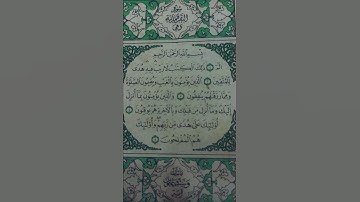 سورة
بسم الله الرحمن الرحيم
الم ذلك الكتب لا ريب فيه هدى
للمتقين الذين يؤمنون بالغيب ويقيمون الصلوة
ومما رزقنهم ينفقون والذين يؤمنون بما أنزل
إليك وما أنزل من قبلك وبالآخرة هم يوقنون
أولئك على هدى من ربهم وأولئك
هم المفلحون